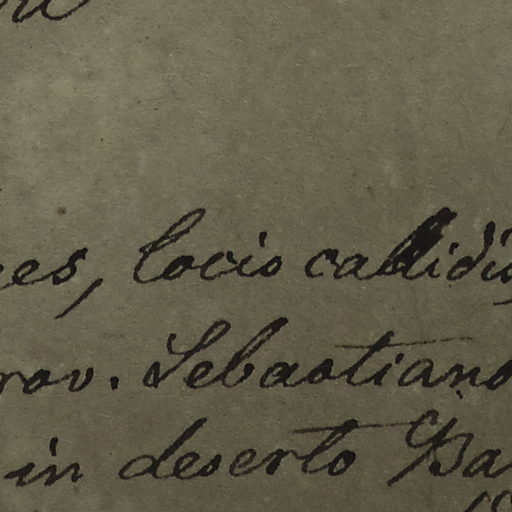 es, locis callidis
rov. Sebastiano
in deserto Ba